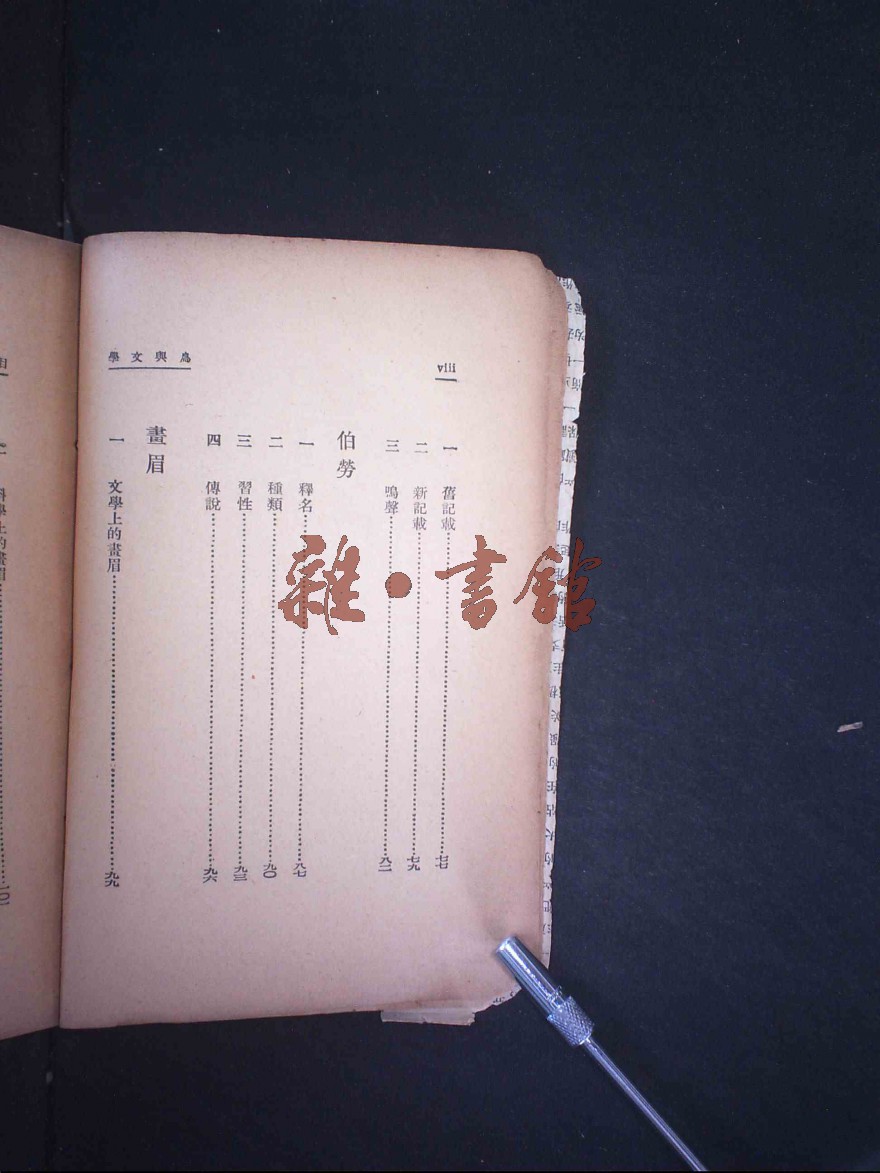 鳥與文學
viii
一 舊記載……七七
二 新記載……七九
三 鳴聲……八二
伯勞
一 釋名……八七
二 種類……九〇
三 習性……九三
四 傳說……九六
畫眉
一 文學上的畫眉……九九
科學上的畫眉……一〇一
雜·書館